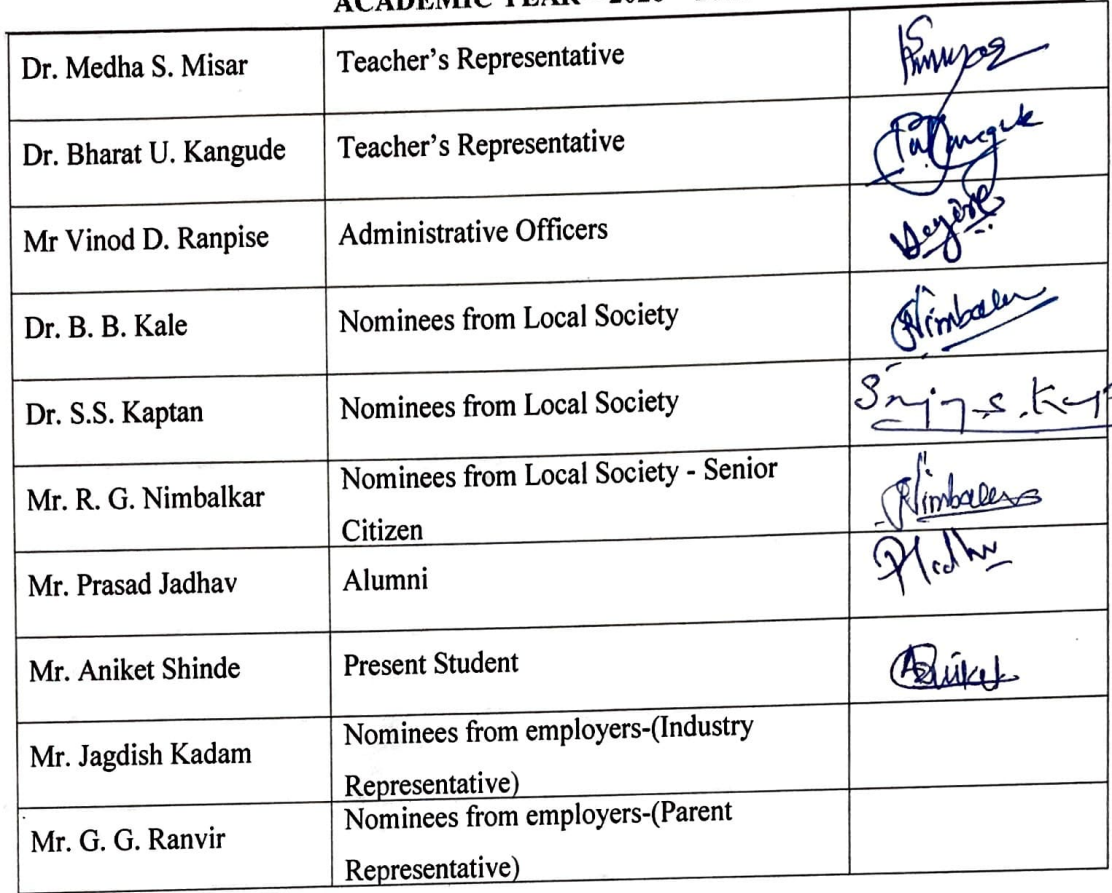 ACADEMIC YEAR
Dr. Medha S. Misar Teacher's Representative
Dr. Bharat U. Kangude Teacher's Representative
Mr Vinod D. Ranpise Administrative Officers
Dr. B. B. Kale Nominees from Local Society Nimbalkar
Dr. S.S. Kaptan Nominees from Local Society
Mr. R. G. Nimbalkar Nominees from Local Society - Senior
Citizen
Mr. Prasad Jadhav Alumni
Mr. Aniket Shinde Present Student Aniket
Mr. Jagdish Kadam Nominees from employers-(Industry
Representative)
Mr. G. G. Ranvir Nominees from employers-(Parent
Representative)